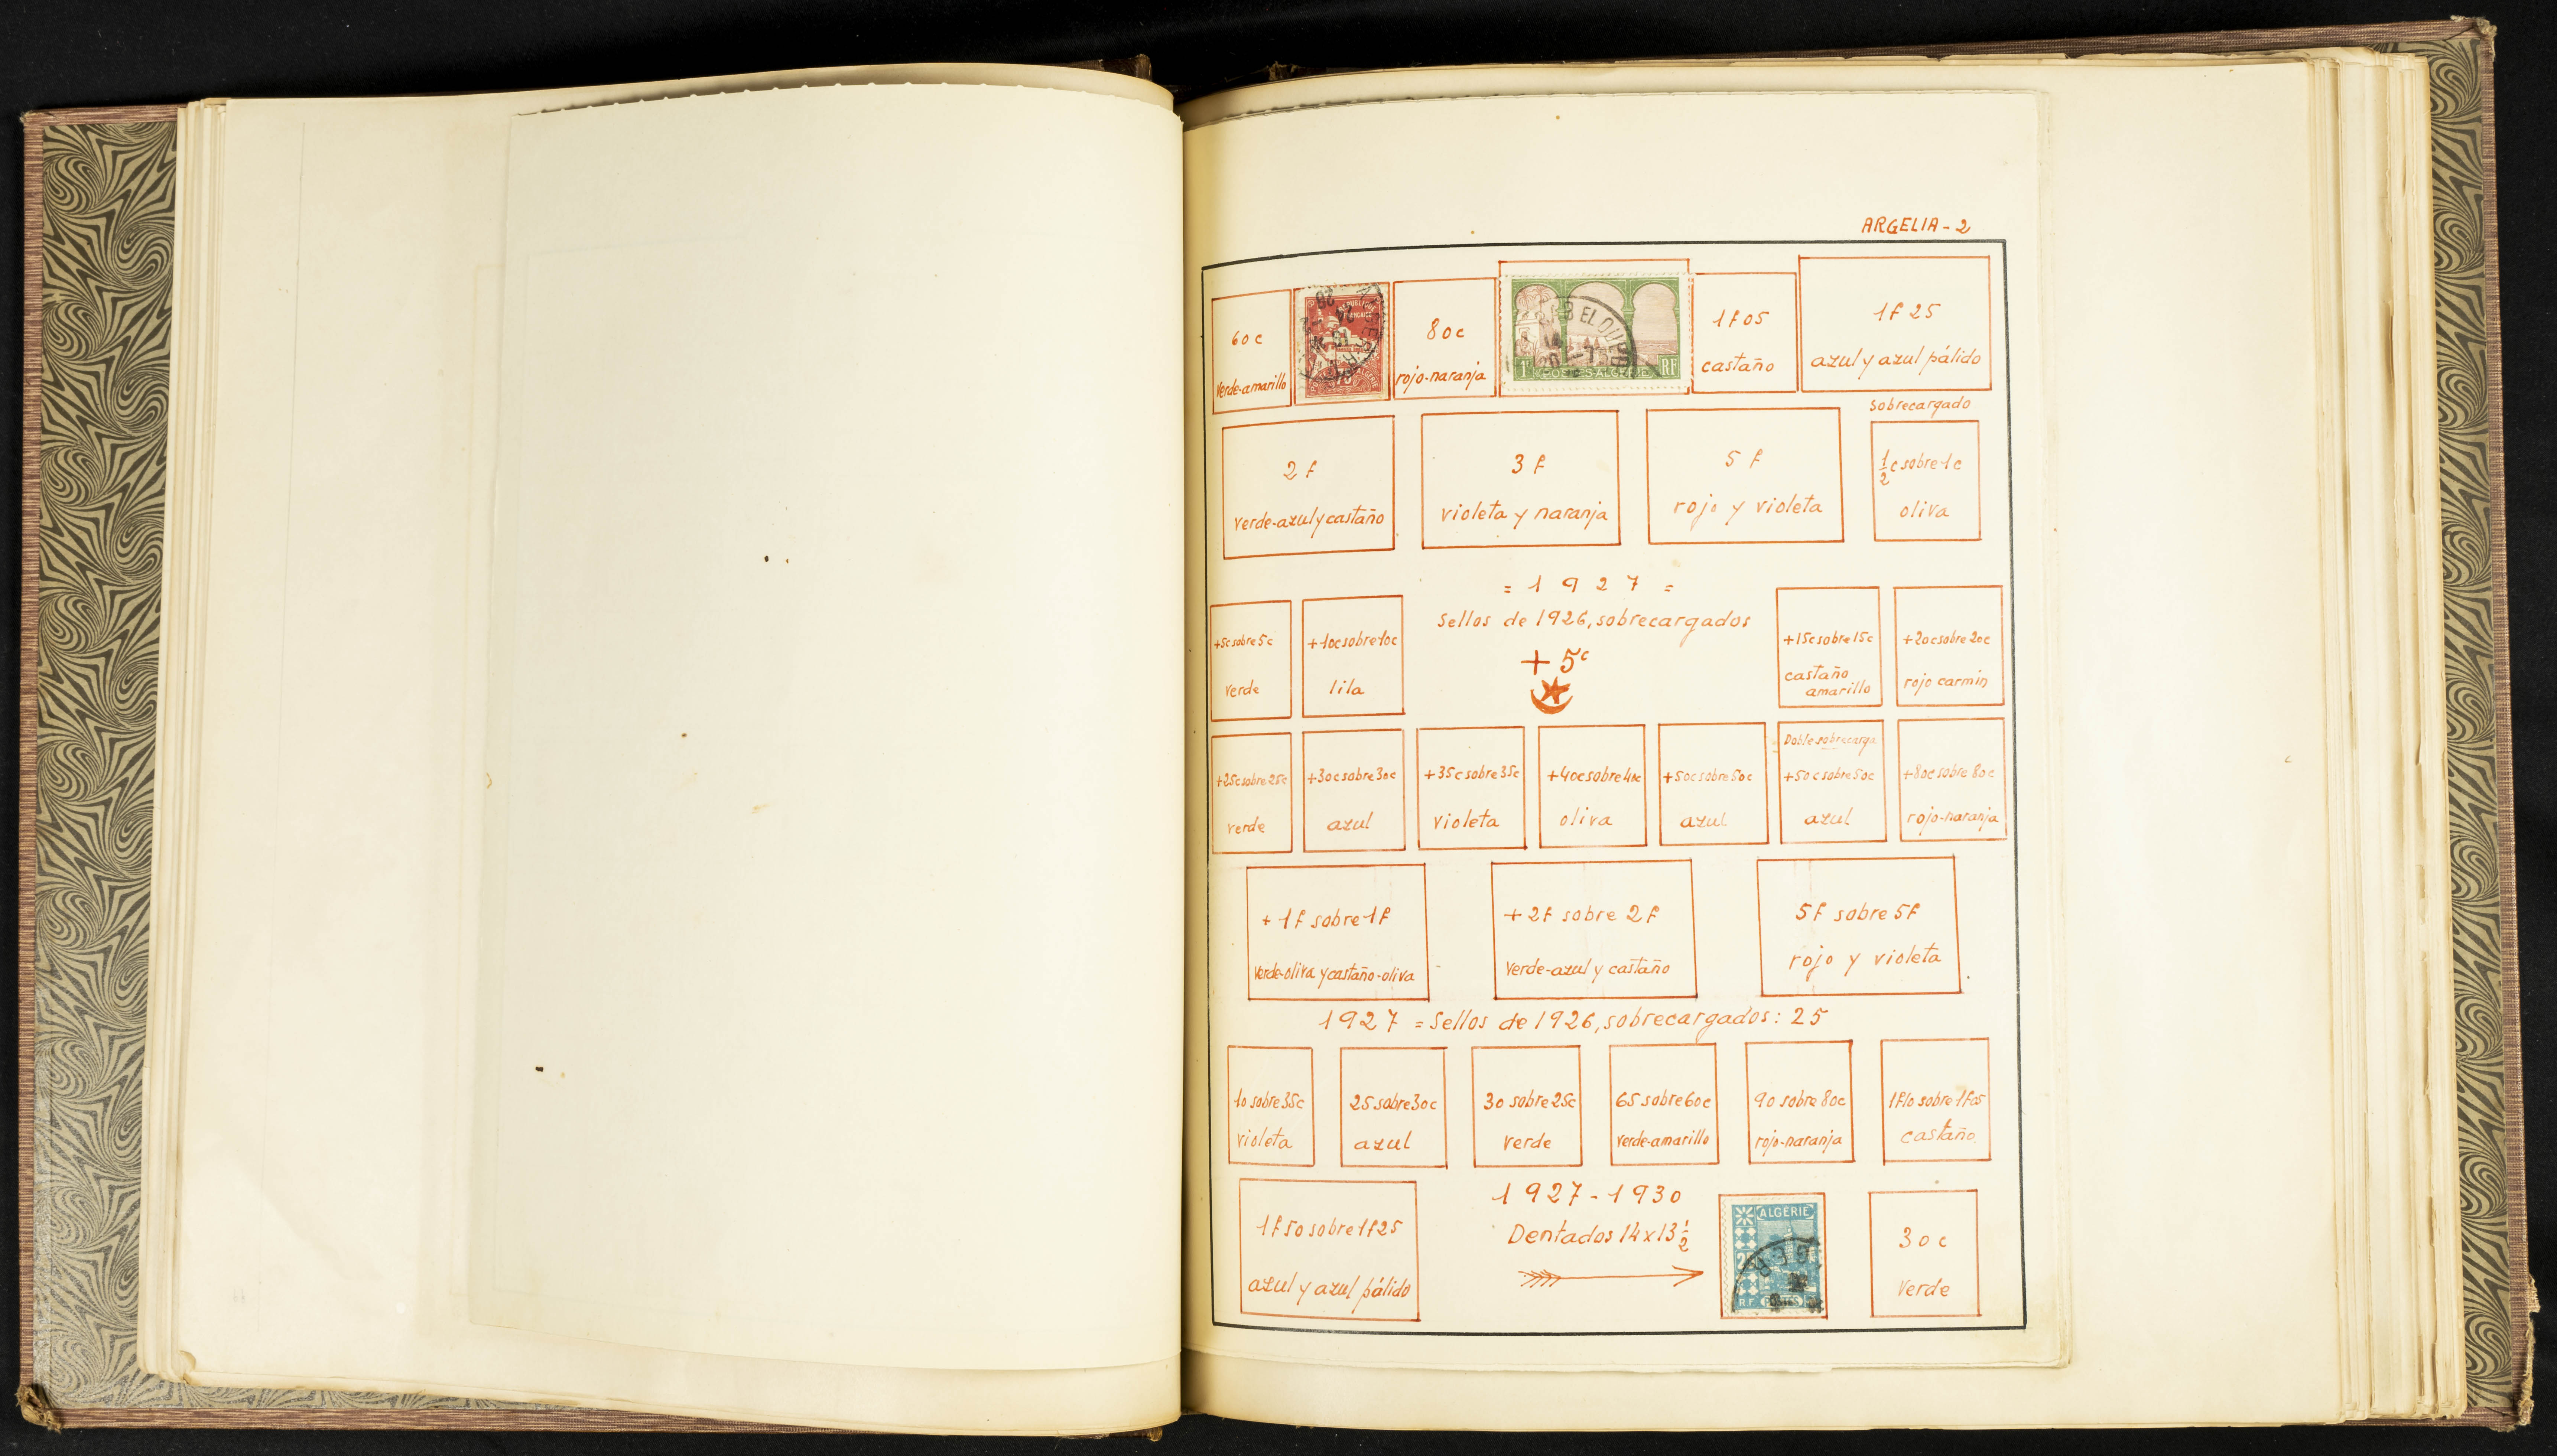 ARGELIA - 2
60c
verde-amarillo
RÉPUBLIQUE
FRANÇAISE
75
80c
rojo-naranja
BAB EL OUED
1F
POSTES-ALGÉRIE
RF
1f05
castaño
1f 25
azul y azul pálido
2 f
verde-azul y castaño
3 f
violeta y naranja
5 f
rojo y violeta
sobrecargado
1/2 c sobre 1c
oliva
= 1 9 2 7 =
Sellos de 1926, sobrecargados
+ 5c
+5c sobre 5c
verde
+10c sobre 10c
lila
+15c sobre 15c
castaño
amarillo
+20c sobre 20c
rojo carmin
+25c sobre 25c
verde
+30c sobre 30c
azul
+35c sobre 35c
violeta
+40c sobre 40c
oliva
+50c sobre 50c
azul
Doble sobrecarga
+50c sobre 50c
azul
+80c sobre 80c
rojo-naranja
+ 1f sobre 1f
verde-oliva y castaño-oliva
+ 2f sobre 2f
verde-azul y castaño
5f sobre 5f
rojo y violeta
1927 = Sellos de 1926, sobrecargados: 25
10 sobre 35c
violeta
25 sobre 30c
azul
30 sobre 25c
verde
65 sobre 60c
verde-amarillo
90 sobre 80c
rojo-naranja
1f10 sobre 1f05
castaño
1f50 sobre 1f25
azul y azul pálido
1927-1930
Dentados 14x13 1/2
ALGÉRIE
R.F. POSTES
30c
verde